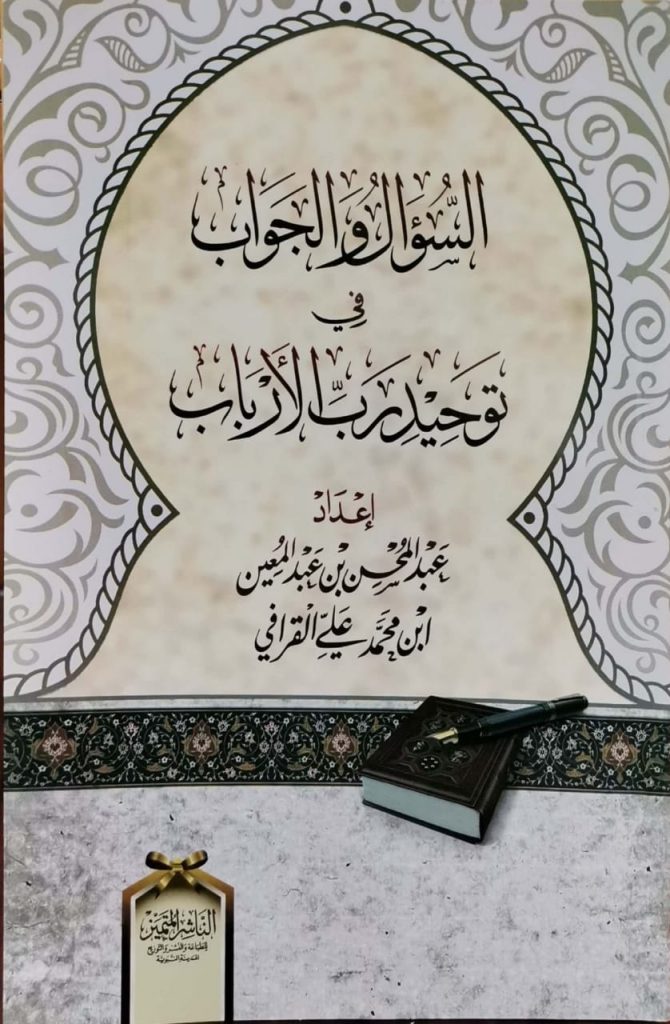 السُّؤَالُ وَالجَوَاب
فِي
تَوْحِيْدِ رَبِّ الأَرْبَاب
إعْدَادْ
عَبْدالمُحْسِن بْن عَبْدالمُعِين
ابْن مُحَمَّد عَلِيّ القَرافي
النَّاشِر المُتَمَيِّز
للطباعة والنشر والتوزيع
المدينة النبوية